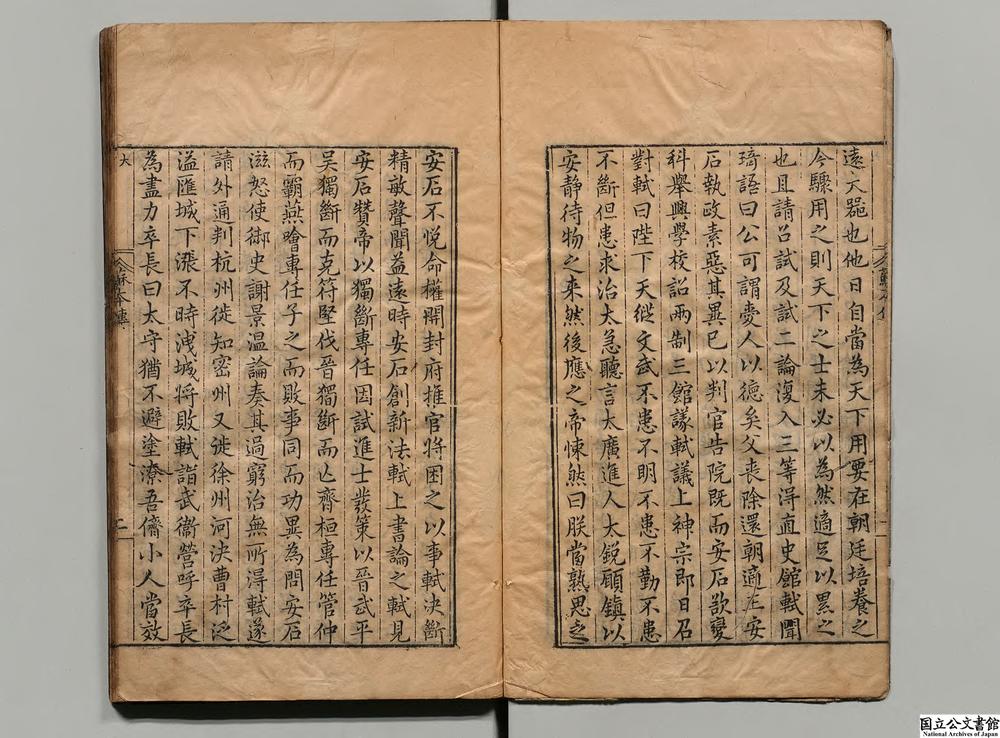 遠大器也他日自當為天下用要在朝廷培養之
今驟用之則天下之士未必以為然適足以累之
也且請召試及試二論復入三等得直史館軾聞
琦語曰公可謂愛人以德矣父喪除還朝適在安
石執政素惡其異已以判官告院既而安石欲變
科舉興學校詔兩制三館議軾議上神宗即日召
對軾曰陛下天縱文武不患不明不患不勤不患
不斷但患求治太急聽言太廣進人太銳願鎮以
安静待物之来然後應之帝悚然曰朕當熟思之
安石不悅命權開封府推官將困之以事軾决斷
精敏聲聞益遠時安石創新法軾上書論之軾見
安石贊帝以獨斷專任因試進士發策以晉武平
吴獨斷而克符堅伐晉獨斷而亡齊桓專任管仲
而霸燕噲專任子之而敗事同而功異為問安石
滋怒使御史謝景温論奏其過窮治無所得軾遂
請外通判杭州徙知密州又徙徐州河决曹村泛
溢匯城下漲不時洩城将敗軾詣武衞營呼卒長
為盡力卒長曰太守猶不避塗潦吾儕小人當效
蘇本傳
二
大
国立公文書館
National Archives of Japan